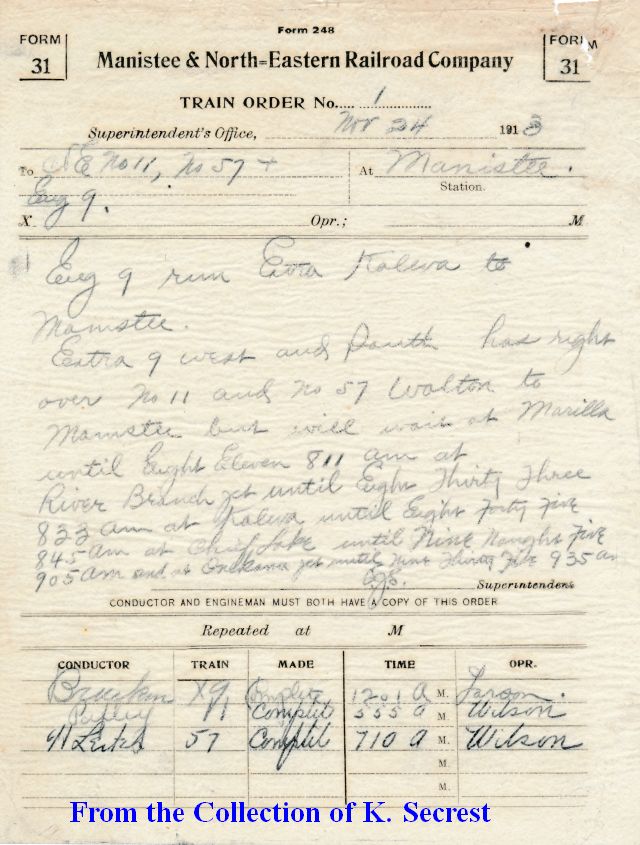 Form 248
FORM 31
FORM 31
Manistee & North=Eastern Railroad Company
TRAIN ORDER No..... 1 ..............
Superintendent's Office, Nov 24 1913
To No 11, No 57 + At Manistee.
Eng 9. Station.
X Opr.; M
Eng 9 run Extra Kaleva to
Manistee.
Extra 9 west and South has right
over No 11 and No 57 Walton to
Manistee but will wait at Marilla
until Eight Eleven 811 am at
River Branch jct until Eight Thirty Three
833 am at Kaleva until Eight Forty Five
845 am at Chief Lake until Nine Naught Five
905 am and at Onekama jct until Nine Thirty Five 935 am
Superintendent
CONDUCTOR AND ENGINEMAN MUST BOTH HAVE A COPY OF THIS ORDER
Repeated at M
CONDUCTOR TRAIN MADE TIME OPR.
X9 Complete 1201 a M.
11 Complet 555 a M. Wilson
57 Complet 710 a M. Wilson
M.
M.
From the Collection of K. Secrest